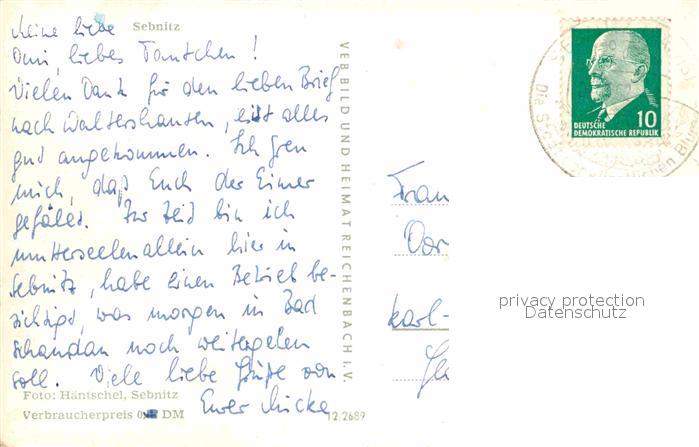 Sebnitz
Meine liebe
Omi, liebes Tantchen!
Vielen Dank für den lieben Brief
nach Waltershausen, ist alles
gut angekommen. Ich freu
mich, daß Euch der Eimer
gefällt. Zur Zeit bin ich
mutterseelenallein hier in
Sebnitz, habe einen Betrieb be-
sichtigt, was morgen in Bad
Schandau noch weitergehen
soll. Viele liebe Grüße von
Eurer
Foto: Häntschel, Sebnitz
Verbraucherpreis DM
12.2689
VEB BILD UND HEIMAT REICHENBACH I. V.
10
DEUTSCHE
DEMOKRATISCHE REPUBLIK
Die
Frau
Dor
Karl-
privacy protection
Datenschutz